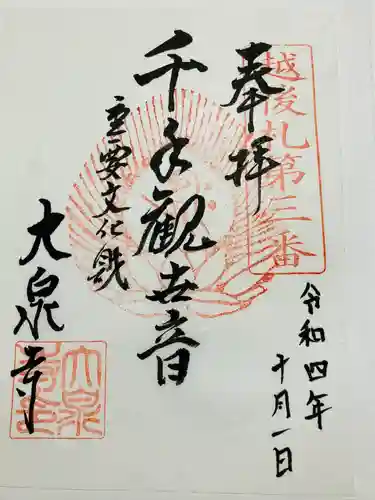 奉拝
越後札第三番
千手観世音
重要文化財
大泉寺
大泉寺印
令和四年
十月一日